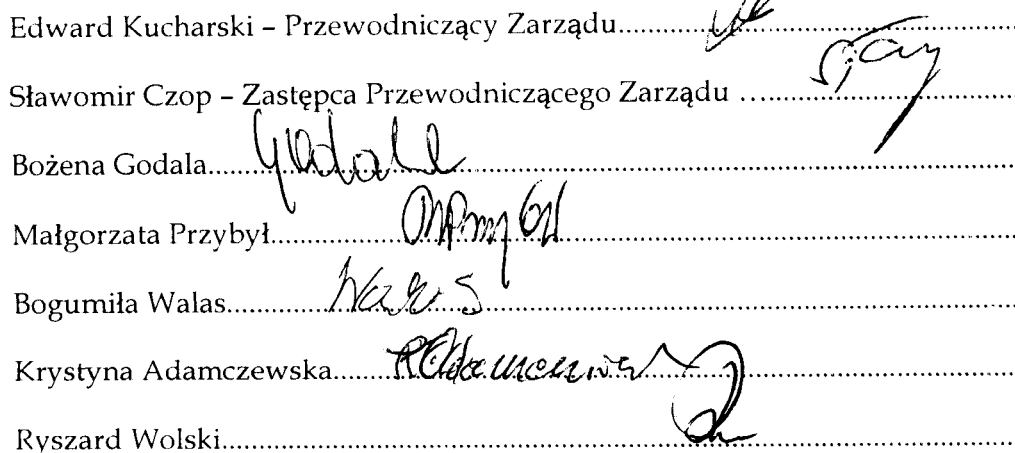 Edward Kucharski – Przewodniczący Zarządu
Sławomir Czop – Zastępca Przewodniczącego Zarządu
Bożena Godala Godala
Małgorzata Przybył MPrzybył
Bogumiła Walas Walas
Krystyna Adamczewska
Ryszard Wolski